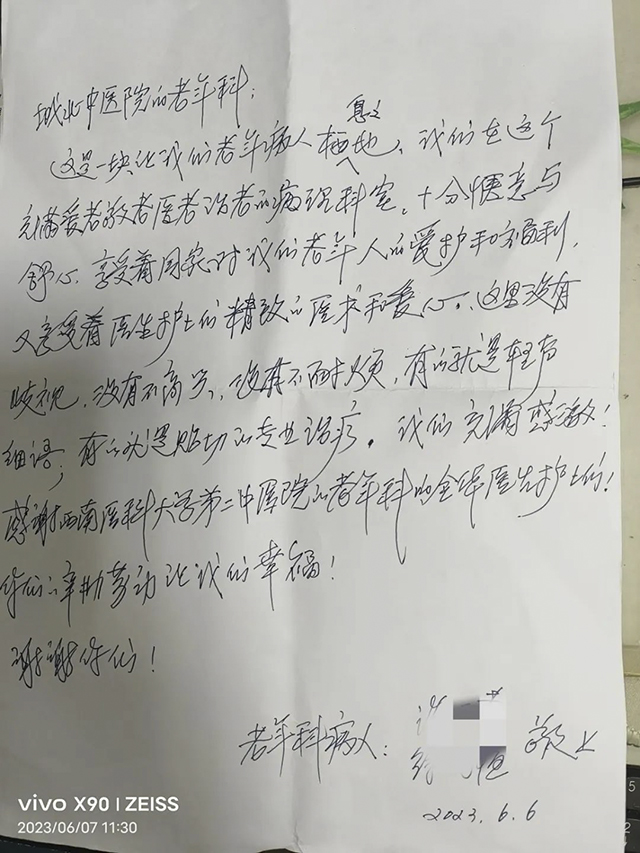 城北中医院的老年科：
这是一块让我们老年病人栖息之地，我们在这个
充满爱者敬者医者治者的病理科室，十分惬意与
舒心，享受着国家对我们老年人的爱护和福利，
又享受着医生护士们精致的医术和爱心。这里没有
歧视，没有不高兴，也有不耐烦，有的就是轻声
细语；有的就是贴切的专业治疗。我们充满感激！
感谢西南医科大学第二中医院的老年科的全体医生护士们！
你们的辛勤劳动让我们幸福！
谢谢你们！
老年科病人： 敬上
2023.6.6
vivo X90 | ZEISS
2023/06/07 11:30